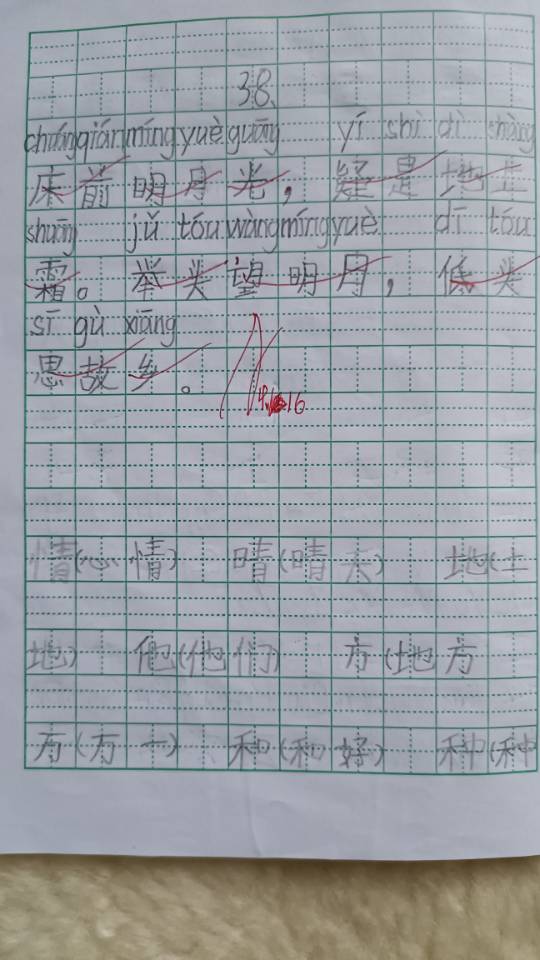 38.
chuáng qián míng yuè guāng yí shì dì shàng
床前明月光，疑是地上
shuāng jǔ tóu wàng míng yuè dī tóu
霜。举头望明月，低头
sī gù xiāng
思故乡。
9.16
情(心情) 晴(晴天) 地(土
地) 他(他们) 方(地方
万(万一) 和(和好) 种(种